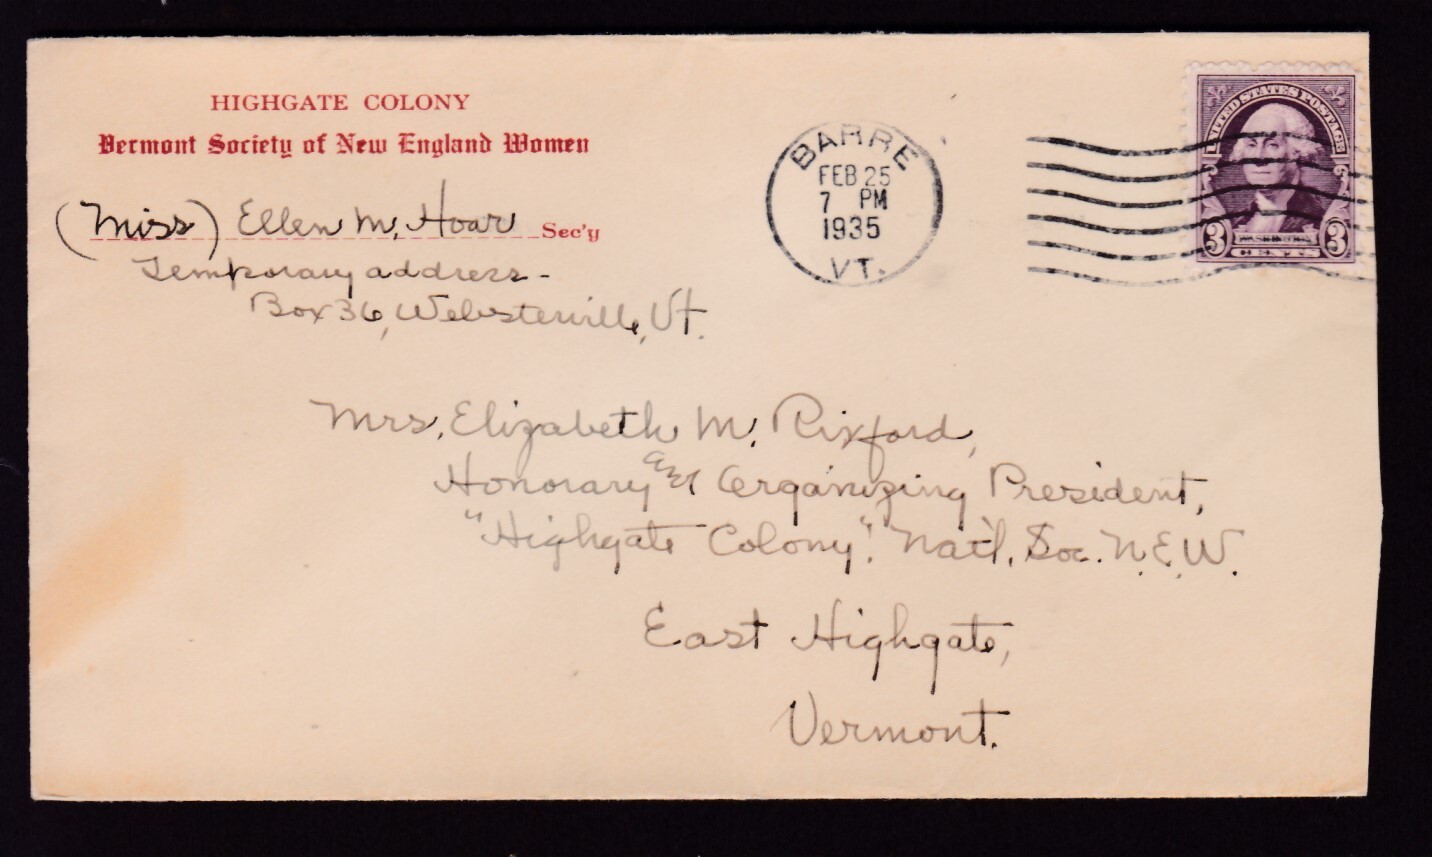 HIGHGATE COLONY
Vermont Society of New England Women
(Miss) Ellen M. Hoar Sec'y
Temporary address -
Box 36, Websterville, Vt.
BARRE
FEB 25
7 PM
1935
VT.
UNITED STATES POSTAGE
3 WASHINGTON 3
CENTS
Mrs. Elizabeth M. Rixford,
Honorary and Organizing President,
"Highgate Colony". Nat'l. Soc. N.E.W.
East Highgate,
Vermont.